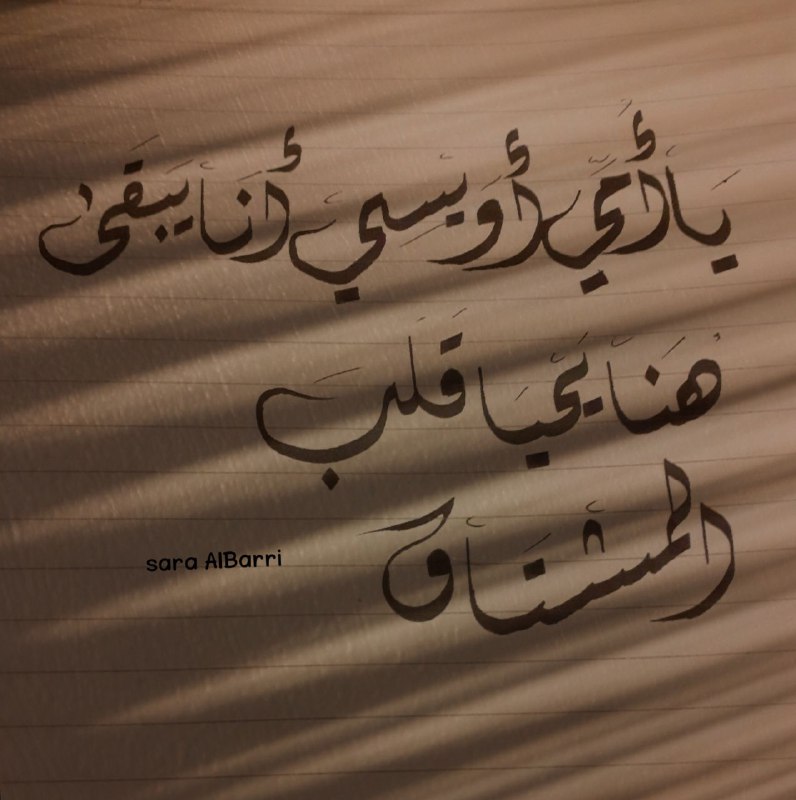 يَا أُمِّي أُويسِي أَنَا يَبقَى
هُنَا يَحْيَا قَلبَ
المشتاق
sara AlBarri